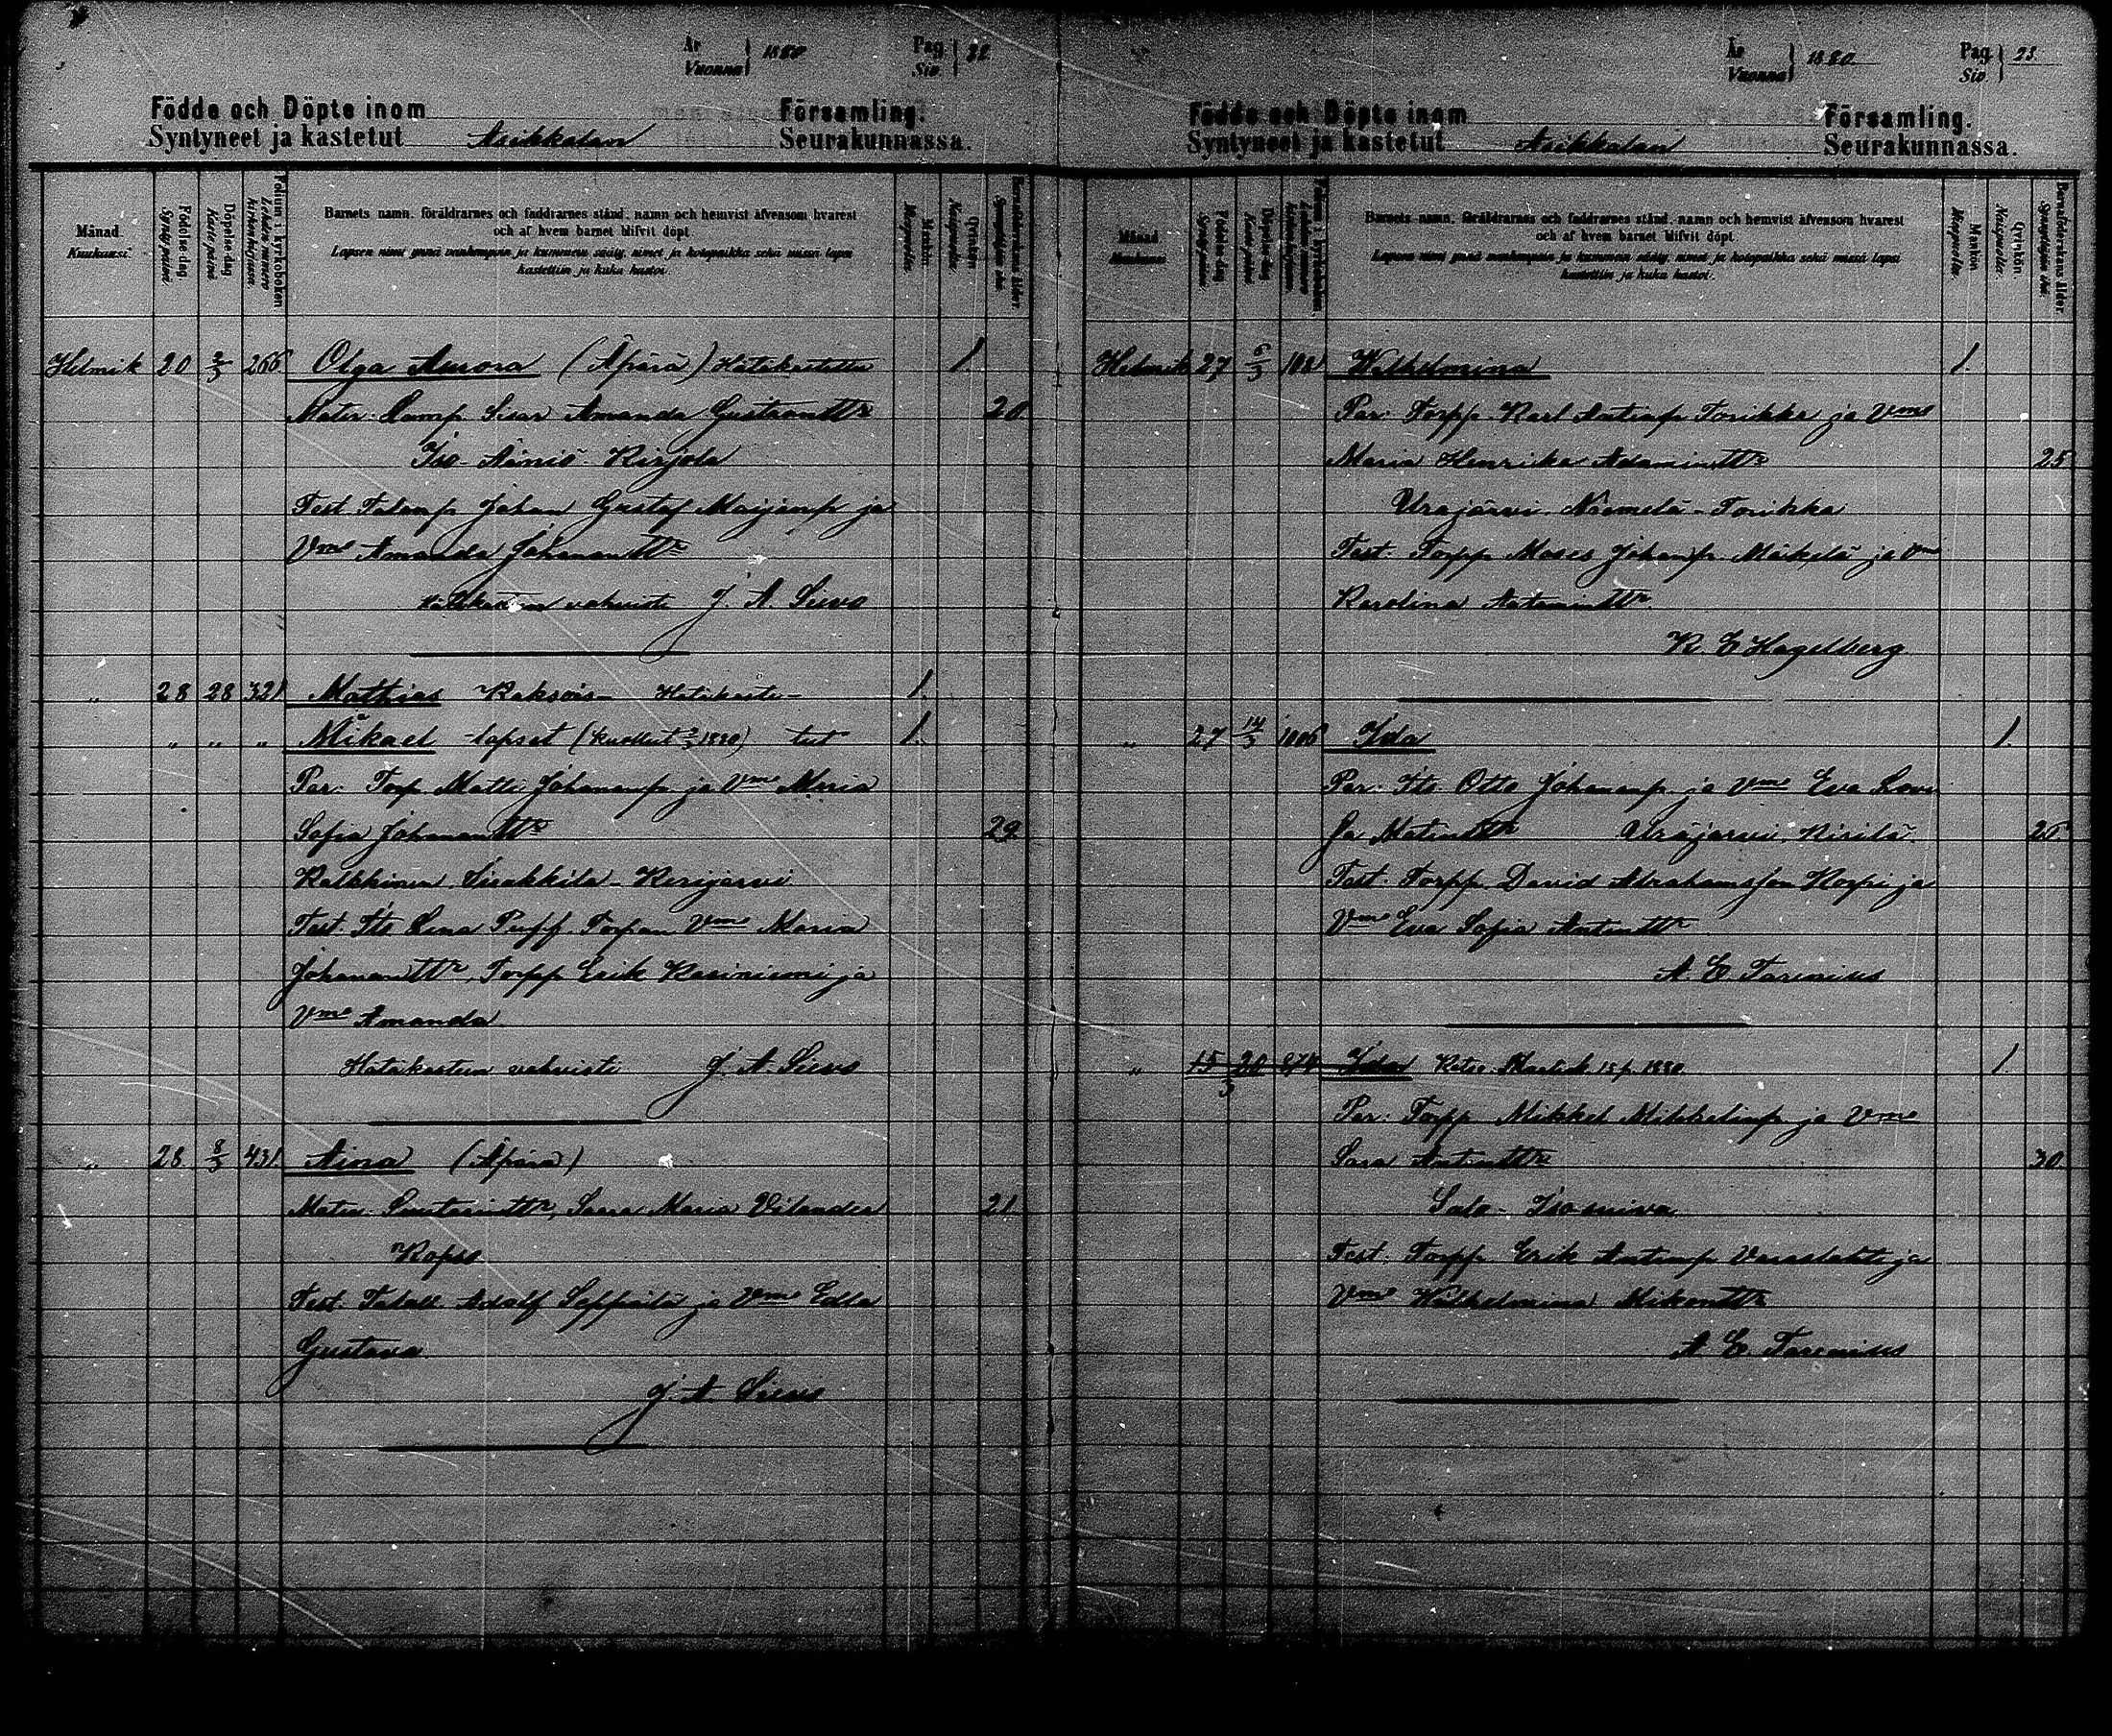 År
Vuonna } 1880
Pag.
Siv. } 22.
Födde och Döpte inom Församling.
Syntyneet ja kastetut Asikkalan Seurakunnassa.
Månad.
Kuukausi.
Födelse-dag.
Syntym.päivä.
Döpelse-dag.
Kaste-päivä.
Folium i kyrkoboken.
Lehden numero kirkonkirjaan.
Barnets namn, föräldrarnes och faddrarnes stånd, namn och hemvist äfvensom hvarest
och af hvem barnet blifvit döpt.
Lapsen nimi ynnä vanhempain ja kummein sääty, nimet ja kotopaikka sekä missä lapsi
kastettiin ja kuka kastoi.
Mankön.
Miespuolia.
Qvinkön.
Naispuolia.
Barnaföderskans ålder.
Synnyttäjän ikä.
Helmik 20 2/3 266 Olga Aurora (Äpärä) Hätäkastettu 1.
Mater: Lamp. Sisar Amanda Gustaantr 20
Iso-Äiniö-Kirjola
Test. Talamp Johan Gustaf Maijanp ja
Vmo Amanda Johanantr
Hätäkasteen vahvisti J. A. Sievo
„ 28 28 321 Mathias Kaksois- Hätäkaste- 1.
„ „ „ Mikael -lapset (kuollut 2/3 1880) tut 1.
Par: Torp. Matti Johananp. ja Vmo Maria
Sofia Johanantr 29
Kalkkinen. Sirakkila-Kerijarvi
Test. Its Lena Puff. Torpan Vmo Maria
Johanantr, Torpp Erik Kasiniemi ja
Vmo Amanda
Hätäkasteen vahvisti J. A. Sievo
„ 28 8/3 431 Aina (Äpärä)
Mater. Saara Maria Vilander 21
Kopso
Test. Talall Adolf Seppälä ja Vmo Edla
Gustava.
J. A. Sievo
År
Vuonna } 1880
Pag.
Siv. } 23.
Födde och Döpte inom Församling.
Syntyneet ja kastetut Asikkalan Seurakunnassa.
Månad.
Kuukausi.
Födelse-dag.
Syntym.päivä.
Döpelse-dag.
Kaste-päivä.
Folium i kyrkoboken.
Lehden numero kirkonkirjaan.
Barnets namn, föräldrarnes och faddrarnes stånd, namn och hemvist äfvensom hvarest
och af hvem barnet blifvit döpt.
Lapsen nimi ynnä vanhempain ja kummein sääty, nimet ja kotopaikka sekä missä lapsi
kastettiin ja kuka kastoi.
Mankön.
Miespuolia.
Qvinkön.
Naispuolia.
Barnaföderskans ålder.
Synnyttäjän ikä.
Helmik 27 6/3 Wilhelmina 1.
Par: Torpp. Karl Antinp Torikka ja Vmo
Maria Henrika Adamintr 25
Urajärvi. Niemelä-Torikka
Test. Torpp Moses Johanp. Mäkelä ja Vmo
Karolina Antamintr
K E Hagelberg
„ 27 14/3 1006 Ida 1.
Par: Its. Otto Johananp. ja Vmo Eva Lovi
sa Matintr Urajärvi. Kirilä. 26
Test. Torpp. David Abrahamsson Korpi ja
Vmo Eva Sofia Antintr
A. E. Tarenius
„ 15 20/3 Ida Katso Maalisk. 15 p. 1880. 1.
Par: Torpp Mikkel Mikkelinp ja Vmo
Sara Antintr 30
Salo-Iso-
Test. Torpp. Erik Antinp Varaslahti ja
Vmo Wilhelmina Mikontr
A. E. Tarenius